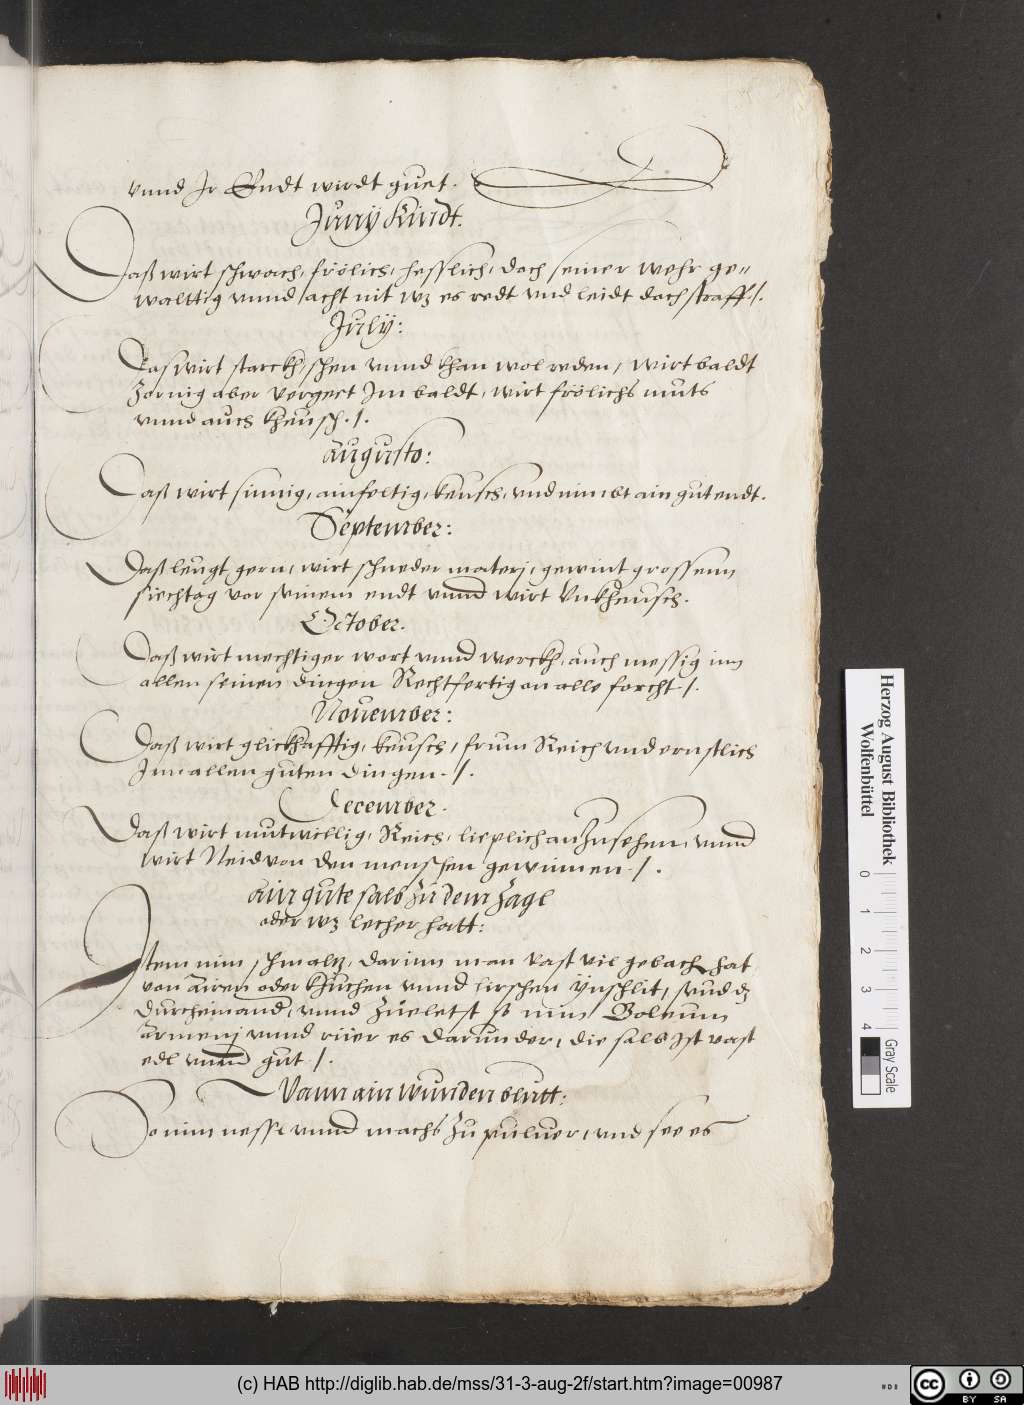 vnnd Ir Endt wirdt guet.
Junÿ Kindt.
Daß wirt schwach, frölich, hesslich, doch seiner wehr ge=
walttig vnnd acht nit wz es redt vnd leidt doch straff./.
Julÿ:
Das wirt starckh, schen vnnd khan wol reden, wirt baldt
zornig aber vergert Im baldt, wirt frölichs muts
vnnd auch kheusch./.
Augusto:
Daß wirt sinnig, ainfeltig, keusch, vnd nimbt ain gut endt.
September:
Daß leugt gern, wirt schneder materj, gewint grossenn
siechtag vor seinem endt vnnd wirt Vnkheusch.
October.
Daß wirt mechtiger wort vnnd werckh, auch messig inn
allen seinen dingen Rechtfertig on alle forcht./.
Nouember:
Daß wirt glickhafftig, keusch, frum Reich vnd ernstlich
Inn allen guten dingen./.
December.
Daß wirt mutwillig, Reich, lieplich an Zusehen, vnnd
wirt Neid von den menschen gewinnen./.
ain gute salb Zu dem Zagl
oder wz lecher hatt:
Item nim schmaltz, darinn man vast vil gebachen hat
von airen oder kuchen vnnd hirschen ÿnschlit, seud dz
durcheinand, vnnd Zueletst so nim Boleum
Armenj vnnd rüer es darunder, die salb ist vast
edl vnnd gut./.
Wann ain wunden blutt:
So nim nessl vnnd machs Zu puluer, vnd see es
Herzog August Bibliothek
Wolfenbüttel
0 1 2 3 4
Gray Scale
(c) HAB http://diglib.hab.de/mss/31-3-aug-2f/start.htm?image=00987
cc BY SA